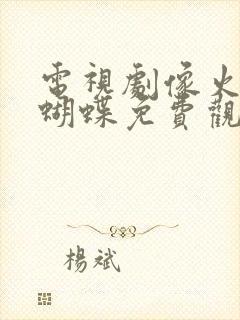 電視劇像火
蝴蝶免費觀
楊斌